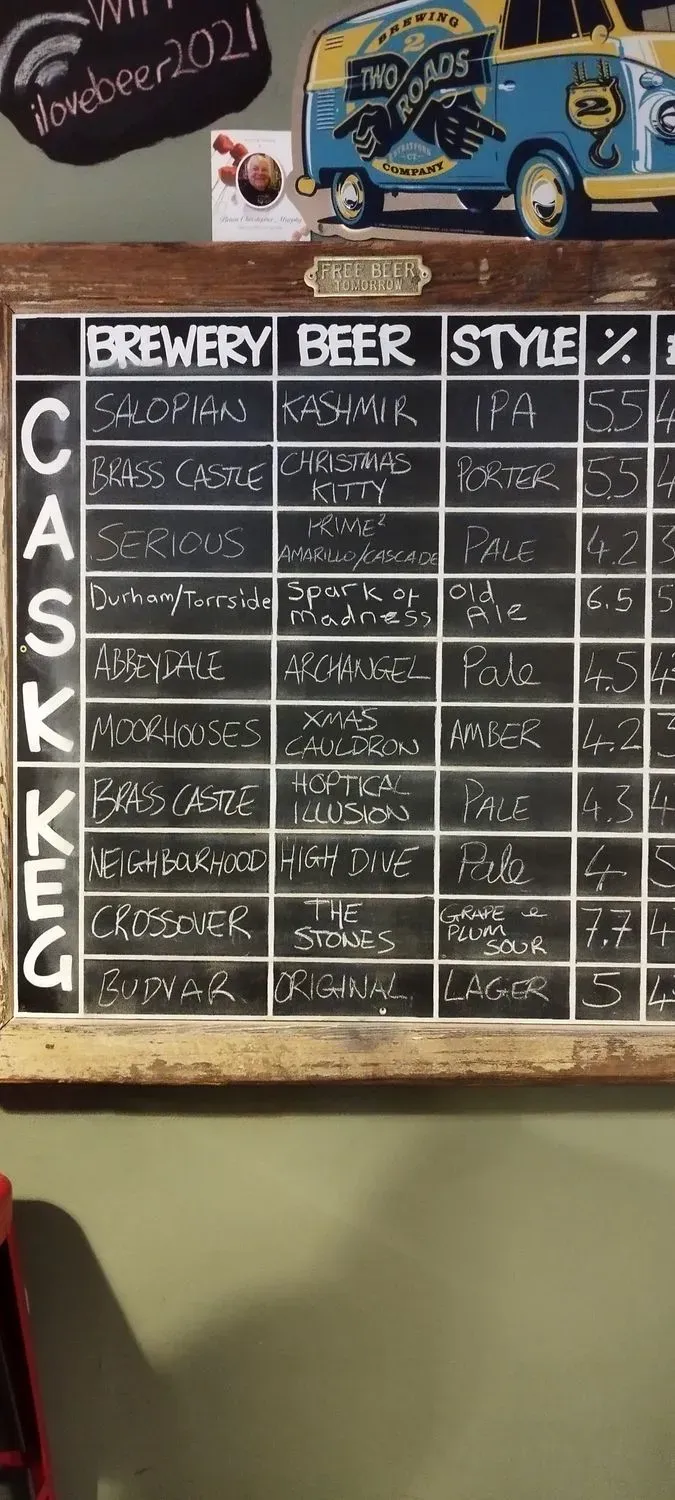 WIFI
ilovebeer2021
BREWING
2
TWO
ROADS
STRATFORD
CT
COMPANY
2
Brian Christopher Murphy
FREE BEER
TOMORROW
BREWERY BEER STYLE %
CASK
SALOPIAN KASHMIR IPA 5.5 4
BRASS CASTLE CHRISTMAS KITTY PORTER 5.5 4
SERIOUS PRIME² AMARILLO/CASCADE PALE 4.2 3
Durham/Torrside Spark of madness Old Ale 6.5 5
ABBEYDALE ARCHANGEL Pale 4.5 4
MOORHOUSES XMAS CAULDRON AMBER 4.2 3
KEG
BRASS CASTLE HOPTICAL ILLUSION PALE 4.3 4
NEIGHBOURHOOD HIGH DIVE Pale 4 5
CROSSOVER THE STONES GRAPE & PLUM SOUR 7.7 4
BUDVAR ORIGINAL LAGER 5 4